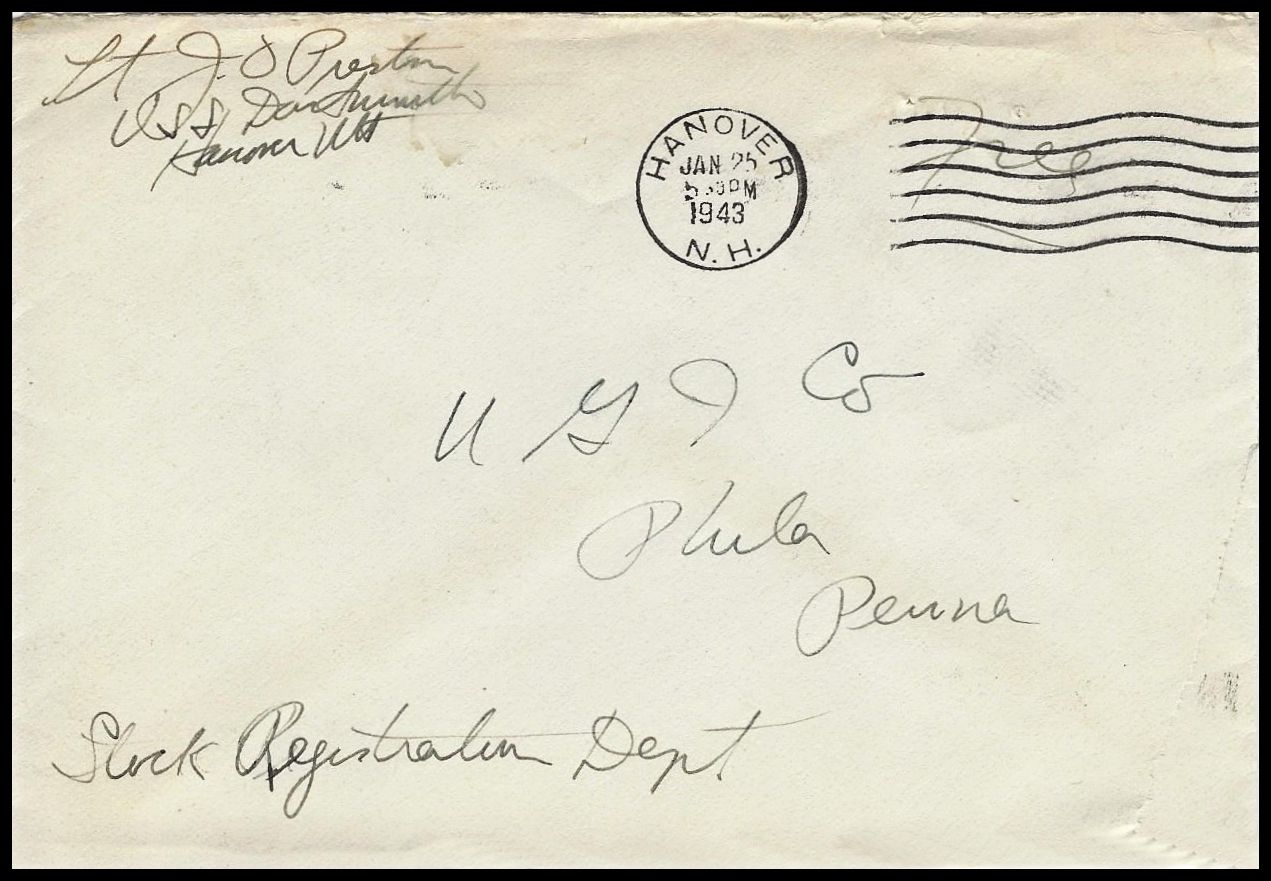 Lt J. O Preston
USS Dartmouth
Hanover
Free
HANOVER
JAN 25
5 30 PM
1943
N. H.
U G I Co
Phila
Penna
Stock Registration Dept